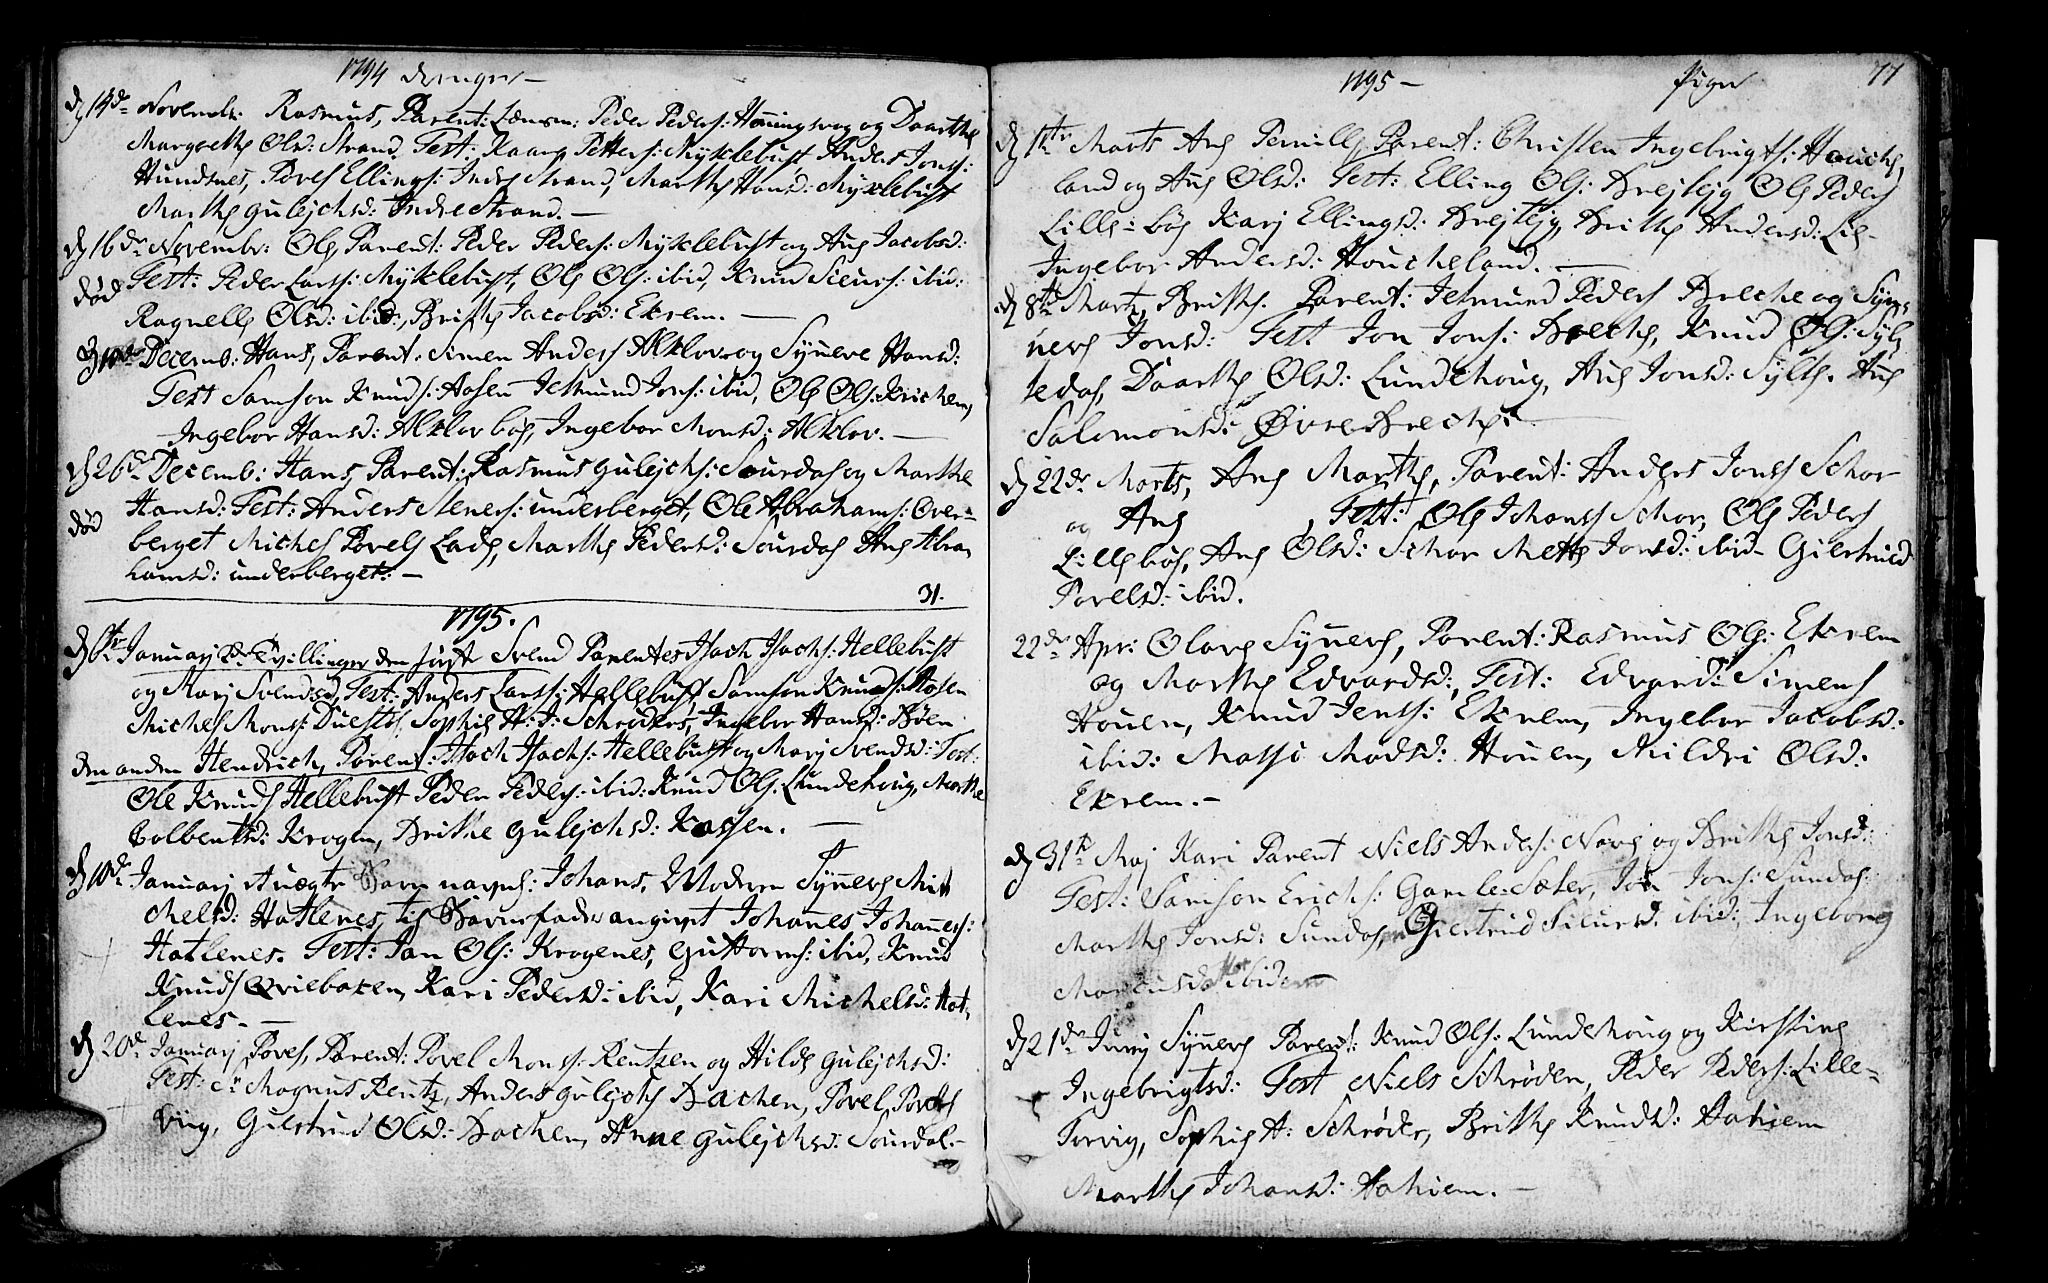 1794 drenger –
d 14de Novembr: Rasmus, Parent: Lænsm: Peder Peders: Honningsvog og Daarthe
Margrethe Olsd: Strand. Test: Kaare Petters: Myklebust Anders Jons:
Hundsnes, Povel Ellings: Indre Strand, Marthe Hansd: Myklebust
Marthe Gulejchsd: Indre Strand. –
d 16de Novembr: Ole, Parent: Peder Peders: Myklebust og Ane Jacobsd:
død Test: Peder Larss: Myklebust, Ole Ols: ibid, Knud Siurs: ibid:
Ragnelle Olsd: ibid, Brithe Jacobsd: Ekrem. –
Decemb: Hans, Parent: Simen Anders Alklov og Synneve Hansd:
Test Samson Knuds: Aasen Jetmund Jons: ibid, Ole Ols: Krichem,
Ingebor Hansd: Alklov bøe, Ingebor Monsd: Alklov. –
d 26de Decemb: Hans, Parent: Rasmus Gulejchs: Sourdal og Marthe
Hansd: Test: Anders Steners: underberget, Ole Abrahams: Over-
død
berget Michel Povels Lade, Marthe Pedersd: Sourdal Ane Abra
hamsd: underberget: –
31.
1795.
d 6te Januarj 2de Tvillinger den først Svend Parentes Isach Isachs: Hellebust
og Marj Svendsd, Test: Anders Larss: Hellebust Samson Knuds: Aasen
Michel Mons: Duestøl, Sophie H: D: Schrøders, Ingebor Hansd: Bøen
den anden Hendrich, Parent: Isach Isachs: Hellebust og Marj Svendsd: Test:
Ole Knuds Hellebust Peder Peders: ibid: Knud Ols. Lundehoug, Marthe
Colbentsd: Krogen, Brithe Gulejchsd: Kassen. –
d 10de Januarj Et uægte Barn navnl: Johans, Moderen Synneve Mi
chelsd: Hatlenes, til Barnefader angivet Johannes Johannes:
Hatlenes. Test: Jan Ols: Krogenes, Guttorms: ibid, Knud
Knuds Qviebaken, Kari Pedersd: ibid, Kari Michelsd: Hat-
lenes. –
d 20de Januarj, Povel, Parent: Povel Mons: Rentzen og Hilde Gulejchsd:
Test: Sr Magnus Rentz, Anders Gulejchs Bachen, Povel Povels
Viig, Gielstrud Olsd: Bachen, Anne Gulejchsd: Sourdal. –
1795 – Piger 77
d 1te Marts Ane Pernille Parent: Christen Ingebrigts: Houche,
land og Ane Olsd: Test: Elling Ols: Brejtejg Ole Peders
Lille-bøe Karj Ellingsd: Brejtejg, Brithe Andersd: Lil-
Ingebor Andersd: Houcheland. –
d 8de Martz, Brithe. Parent: Jetmund Peders Breche og Syn-
nere Jonsd: Test Jon Jons: Breche, Knud Ols: Syl
tedal, Daarthe Olsd: Lundehoug, Ane Jonsd: Sylte. Ane
Salomonsd: Øvre Breche. –
d 22de Marts, Ane Marthe, Parent: Anders Jons Schor
og Ane , Test: Ole Johans Schor, Ole Peders
Lille bøe, Ane Olsd: Schor Mette Jonsd: ibid – Giertrud
Povelsd: ibid.
22de Apr: Olave Synneve, Parent: Rasmus Ols: Ekrem
og Marthe Edvardsd:, Test: Edvard Simens
Houen, Knud Jenss: Ekrem, Ingebor Jacobsd:
ibid: Massi Madsd: Houen, Mildri Olsd:
Ekrem. –
d 31te Maj Kari Parent Niels Anders: Nave og Brithe Jonsd:
Test: Samson Erichs: Gamle-Sæter, Jon Jons: Sundal
Marthe Jonsd: Sundal, Giertrud Siursd: ibid:, Ingeborg
Marcusd ibidem
d 21de Junj Synneve Parent: Knud Ols: Lundehoug og Kirstine
Ingebrigtsd: Test Niels Schrøder, Peder Peders: Lille-
Torvig, Sophie H: Schrøder, Brithe Knudsd: Aahiem
Marthe Johansd: Aahiem. –